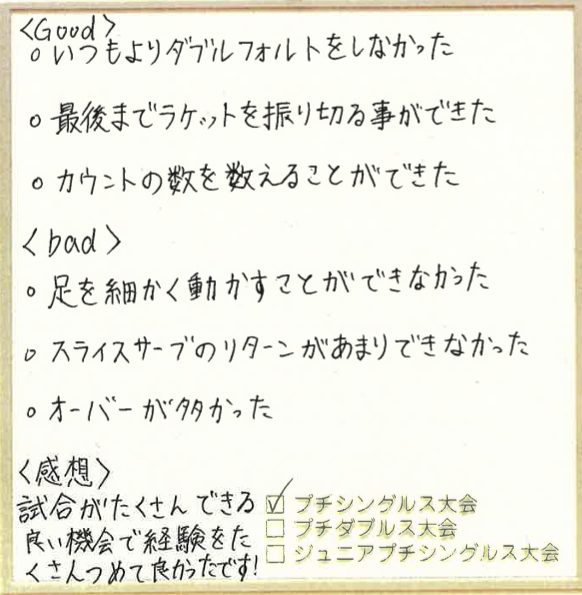 <Good>
○ いつもよりダブルフォルトをしなかった
○ 最後までラケットを振り切る事ができた
○ カウントの数を数えることができた
<bad>
○ 足を細かく動かすことができなかった
○ スライスサーブのリターンがあまりできなかった
○ オーバーが多かった
<感想>
試合がたくさんできる
良い機会で経験をた
くさんつめて良かったです!
☑ プチシングルス大会
☐ プチダブルス大会
☐ ジュニアプチシングルス大会